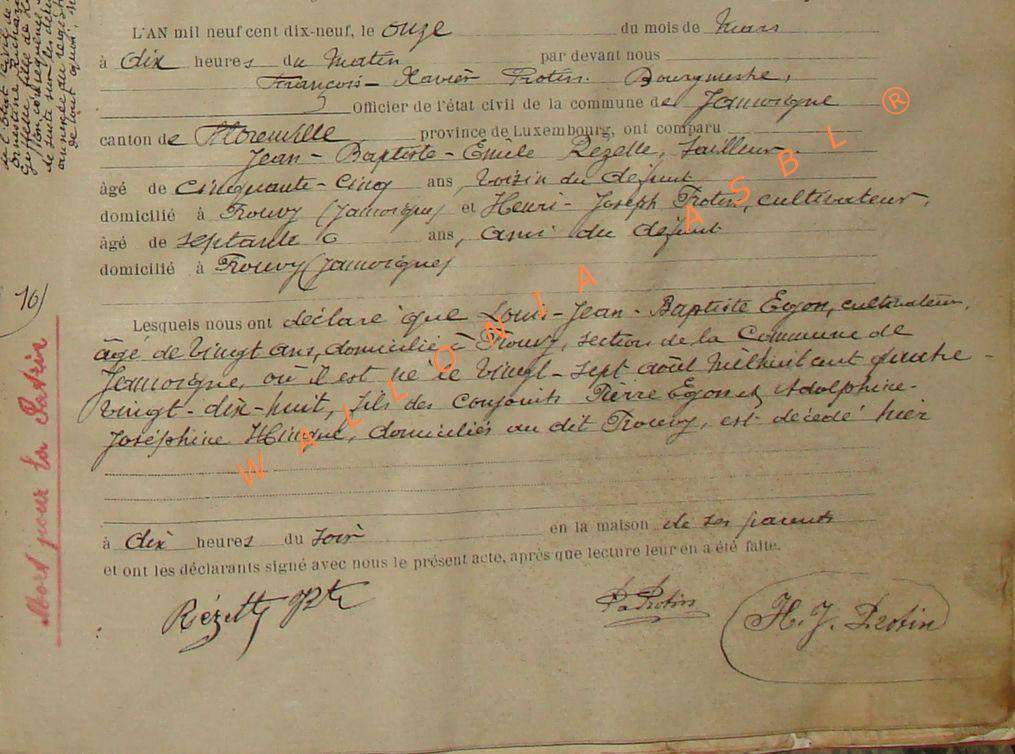 L'AN mil neuf cent dix-neuf, le onze du mois de Mars
à dix heures du Matin par devant nous
François-Xavier Protin. Bourgmestre,
Officier de l'état civil de la commune de Jamoigne
canton de Florenville province de Luxembourg, ont comparu
Jean-Baptiste-Emile Rezette, tailleur.
âgé de Cinquante-Cinq ans, voisin du défunt
domicilié à Prouvy (Jamoigne) et Henri-Joseph Protin, cultivateur,
âgé de septante ans, ami du défunt
domicilié à Prouvy (Jamoigne)
16)
Lesquels nous ont déclaré que Louis-Jean-Baptiste Egon, cultivateur,
âgé de vingt ans, domicilié à Prouvy, section de la Commune de
Jamoigne, où il est né le vingt-sept août mil huit cent quatre-
vingt-dix-huit, fils des conjoints Pierre Egon et Adolphine-
Joséphine, domiciliés au dit Prouvy, est décédé hier
à dix heures du soir en la maison de ses parents
et ont les déclarants signé avec nous le présent acte, après que lecture leur en a été faite.
Rézette JBte
H. J. Protin
Mort pour la Patrie
WALLONIA ASBL ®